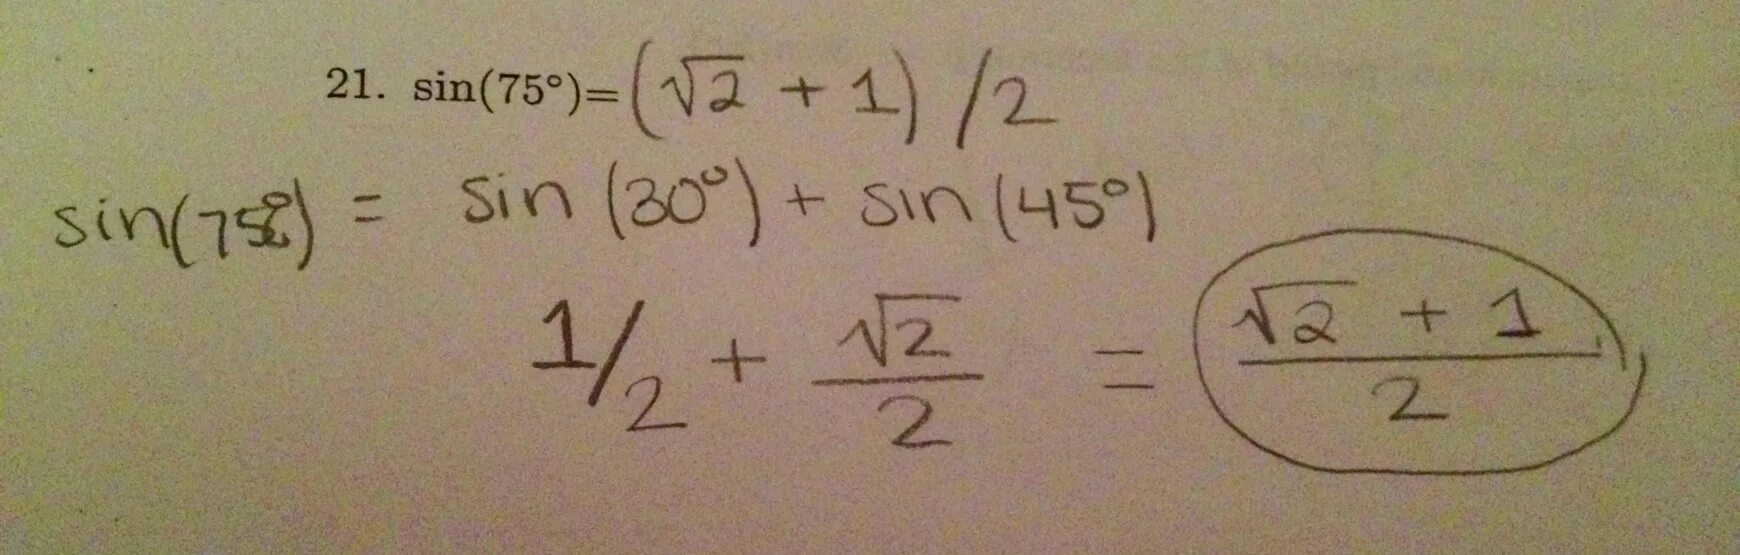 21. sin(75°)=(√2 + 1) /2
sin(75°) = sin (30°) + sin (45°)
1/2 + √2/2 = (√2 + 1)/2